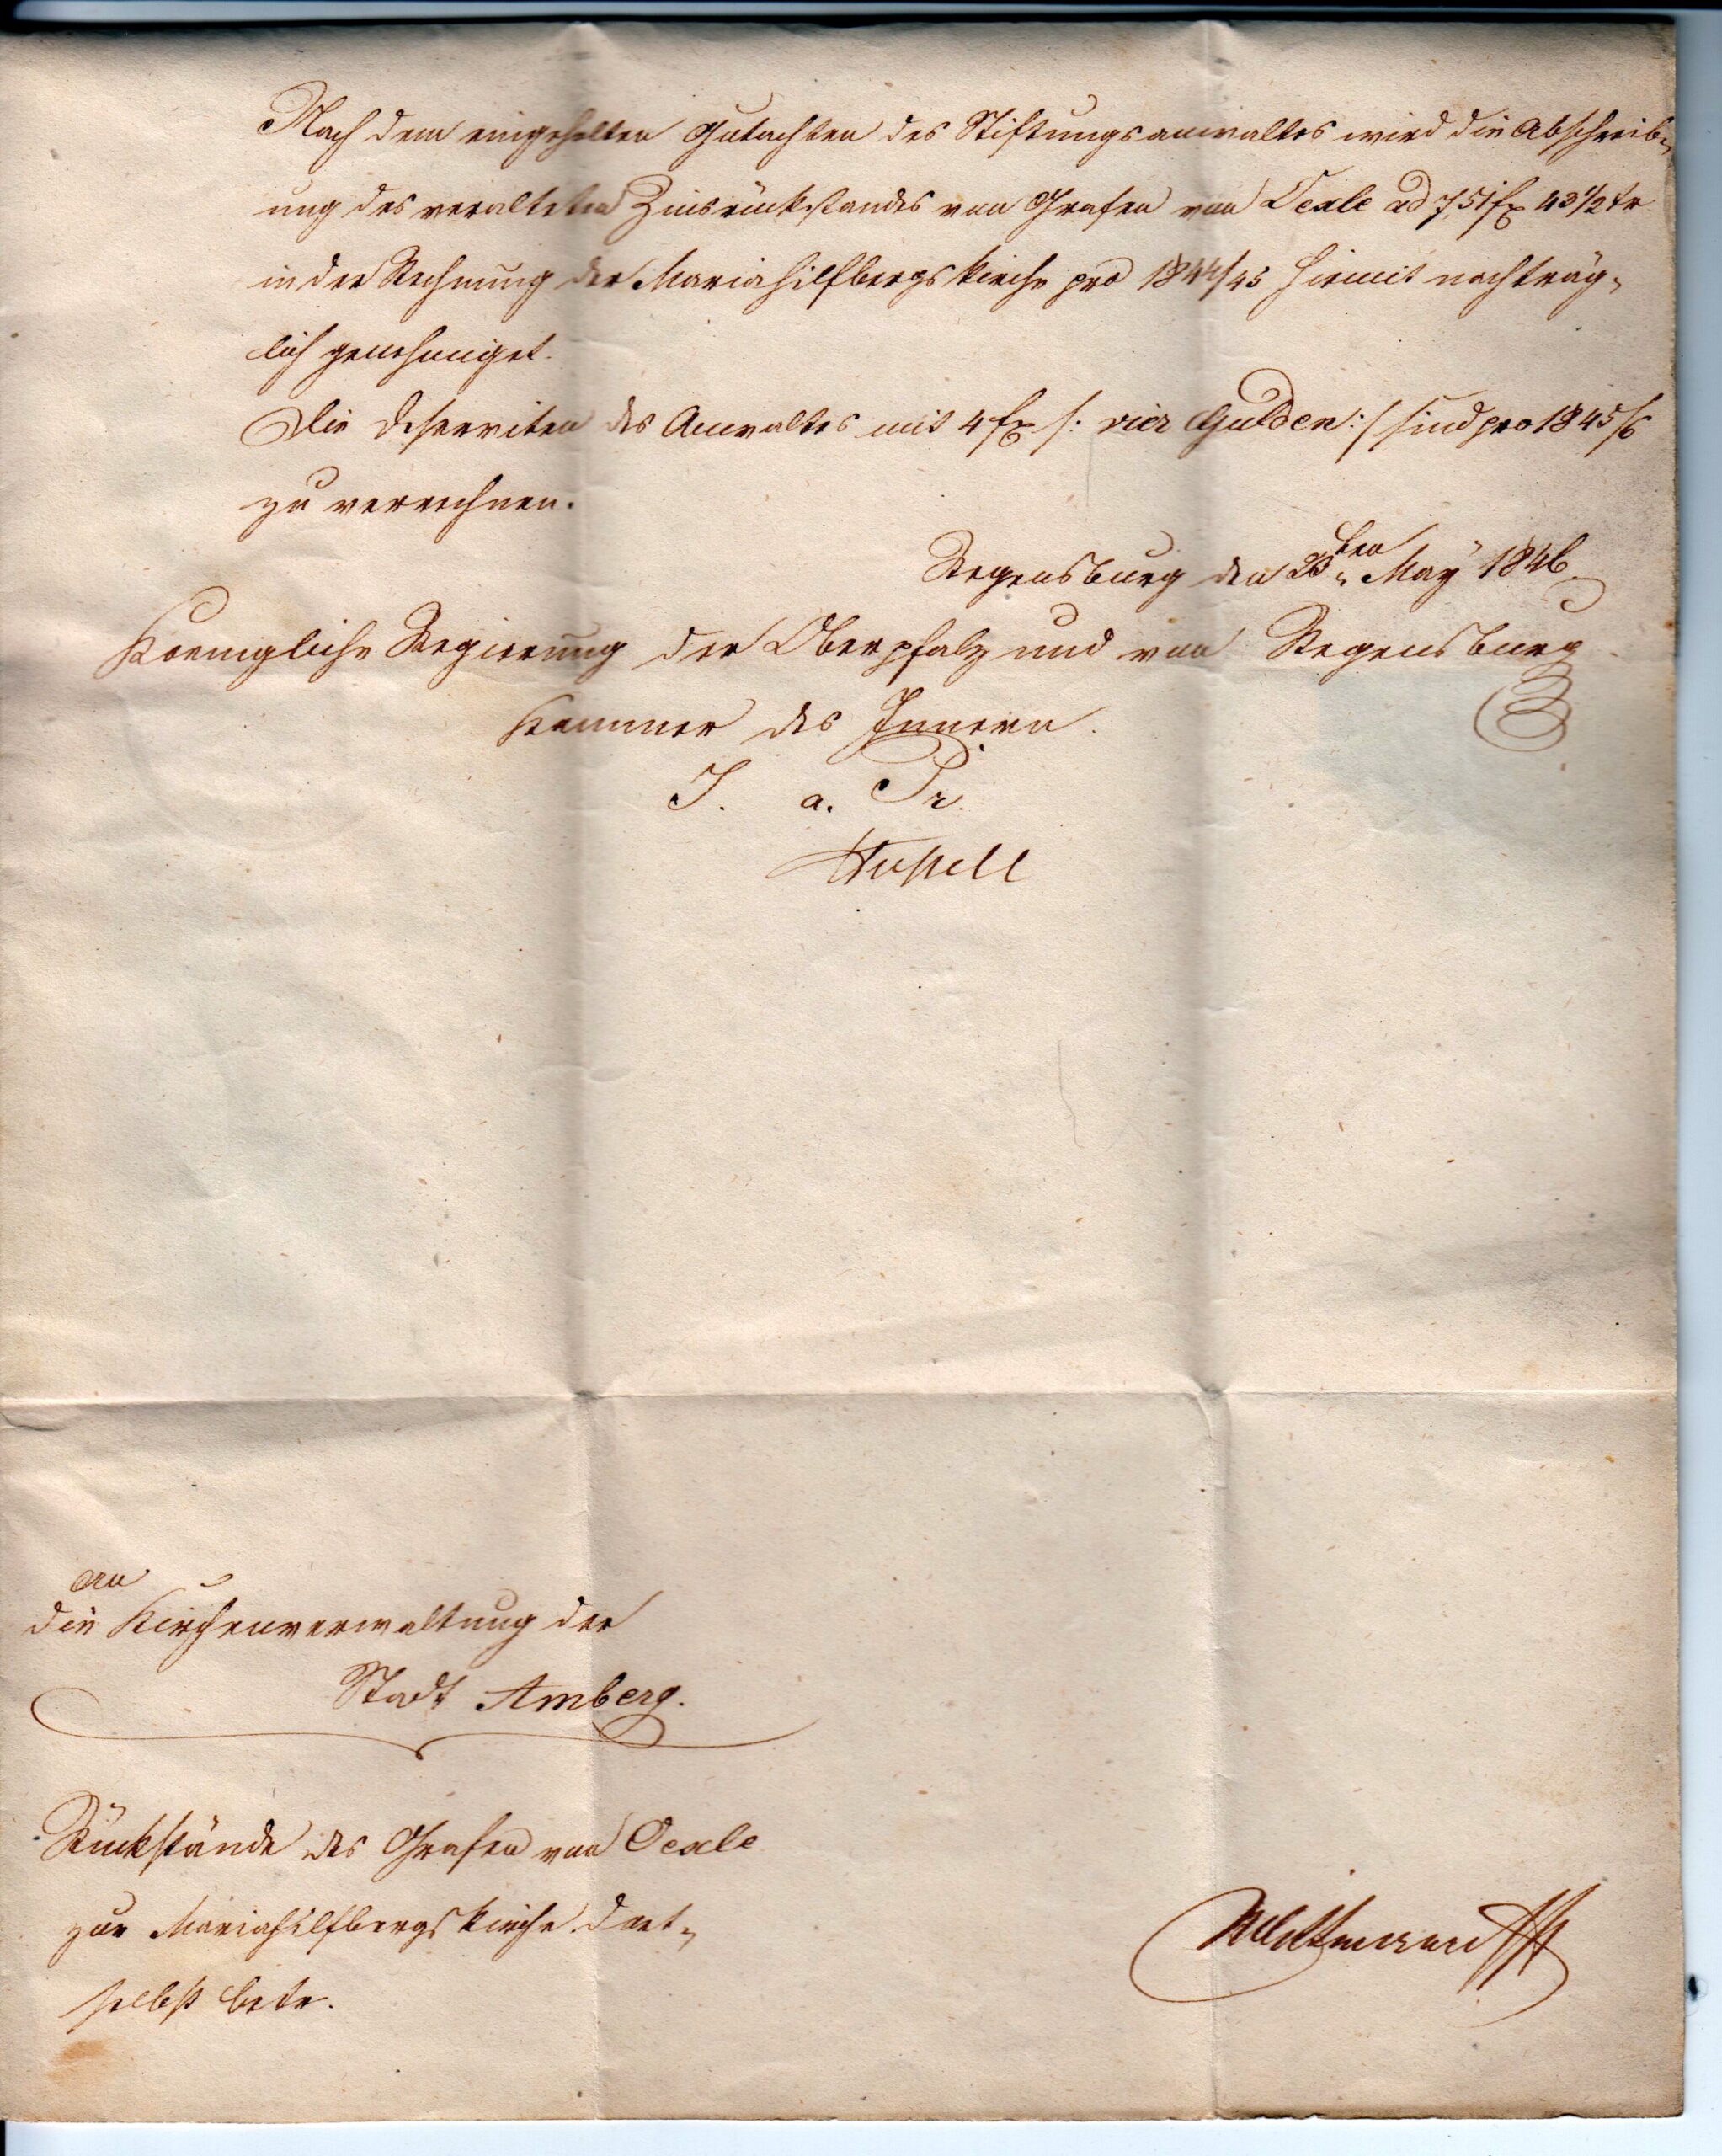 Nach dem eingeholten Gutachten des Stiftungsanwaltes wird die Abschreib-
ung des veralteten Zinsrückstandes von Grafen von Oexle ad 751 fx 43 1/2 kr
in der Rechnung der Mariahilfbergskirche pro 1844/45 hiemit nachträg-
lich genehmiget.
Die Deserviten des Anwaltes mit 4 fx /: vier Gulden :/ sind pro 1845/6
zu verrechnen.
Regensburg den 23ten May 1846.
Koenigliche Regierung der Oberpfalz und von Regensburg
Kammer des Innern.
J. a. Pr.
An
die Kirchenverwaltung der
Stadt Amberg.
Rückstände des Grafen von Oexle
zur Mariahilfbergskirche dort-
selbst betr.